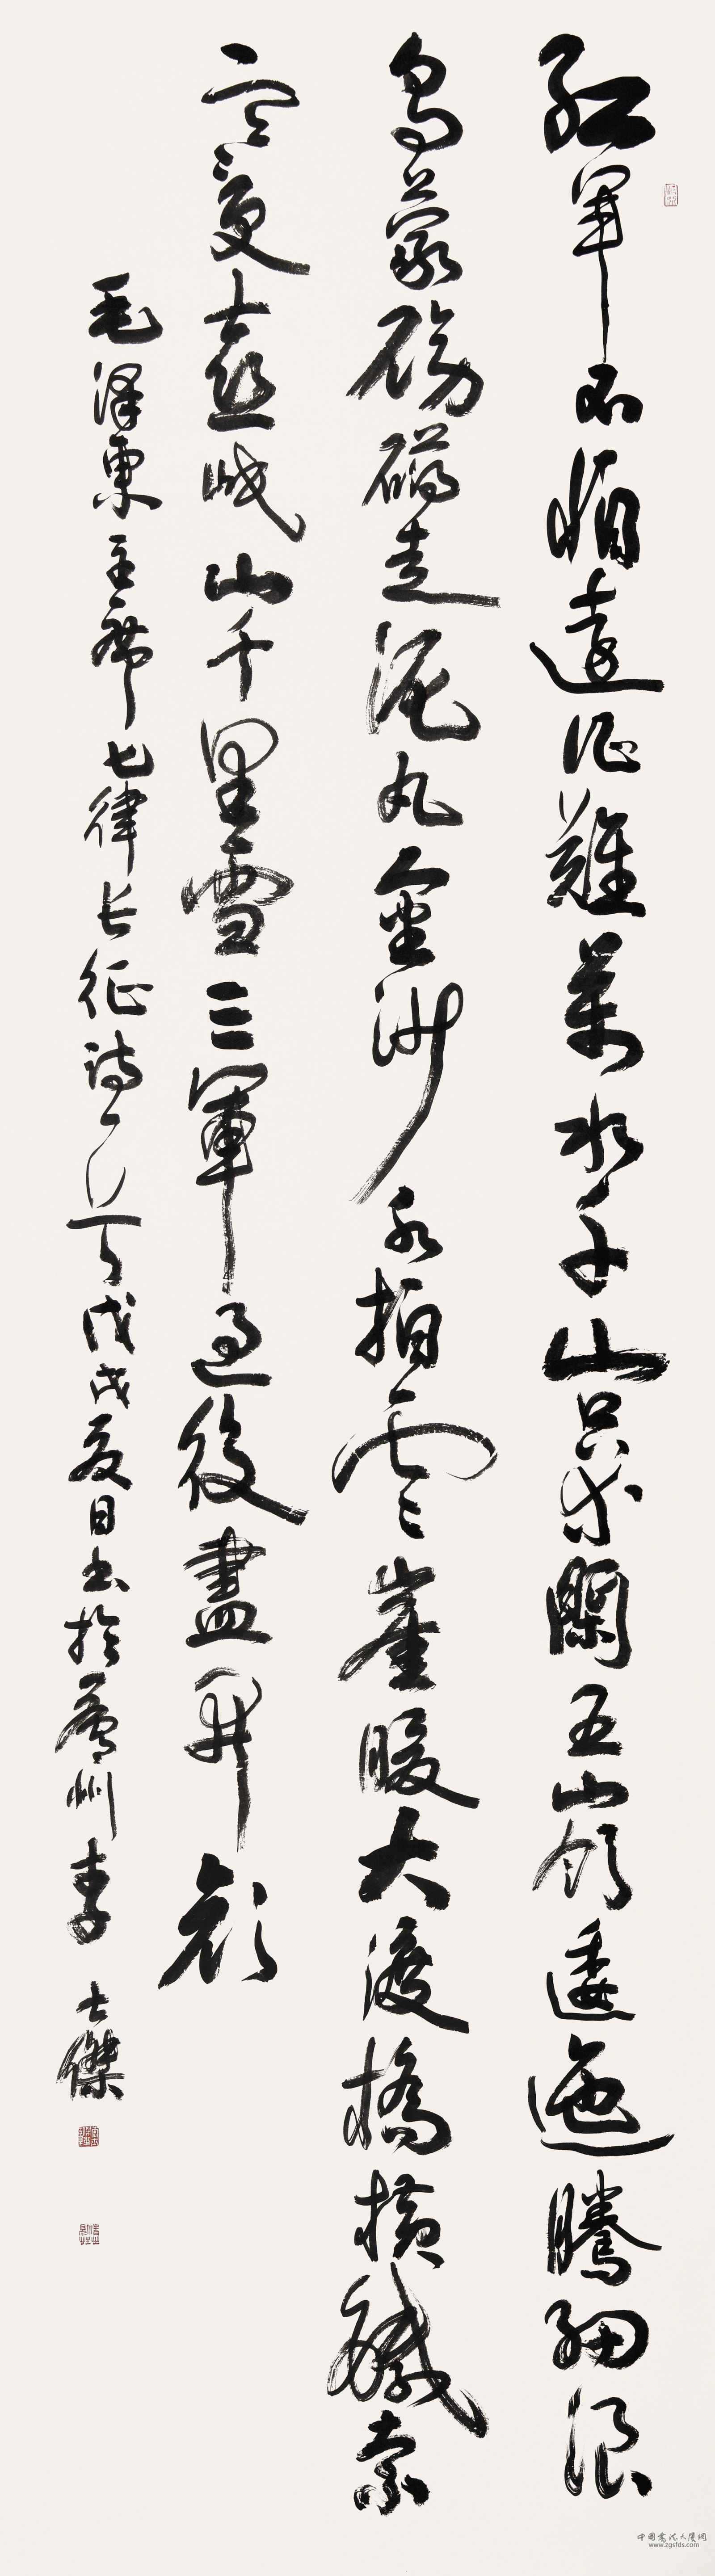 紅軍不怕遠征難萬水千山只等閑五嶺逶迤騰細浪
烏蒙磅礴走泥丸金沙水拍雲崖暖大渡橋橫鐵索
寒更喜岷山千里雪三軍過後盡開顏
毛澤東主席七律长征詩一首戊戌夏日書於廬州李士傑
中國書法大廈網
www.zgsfds.com